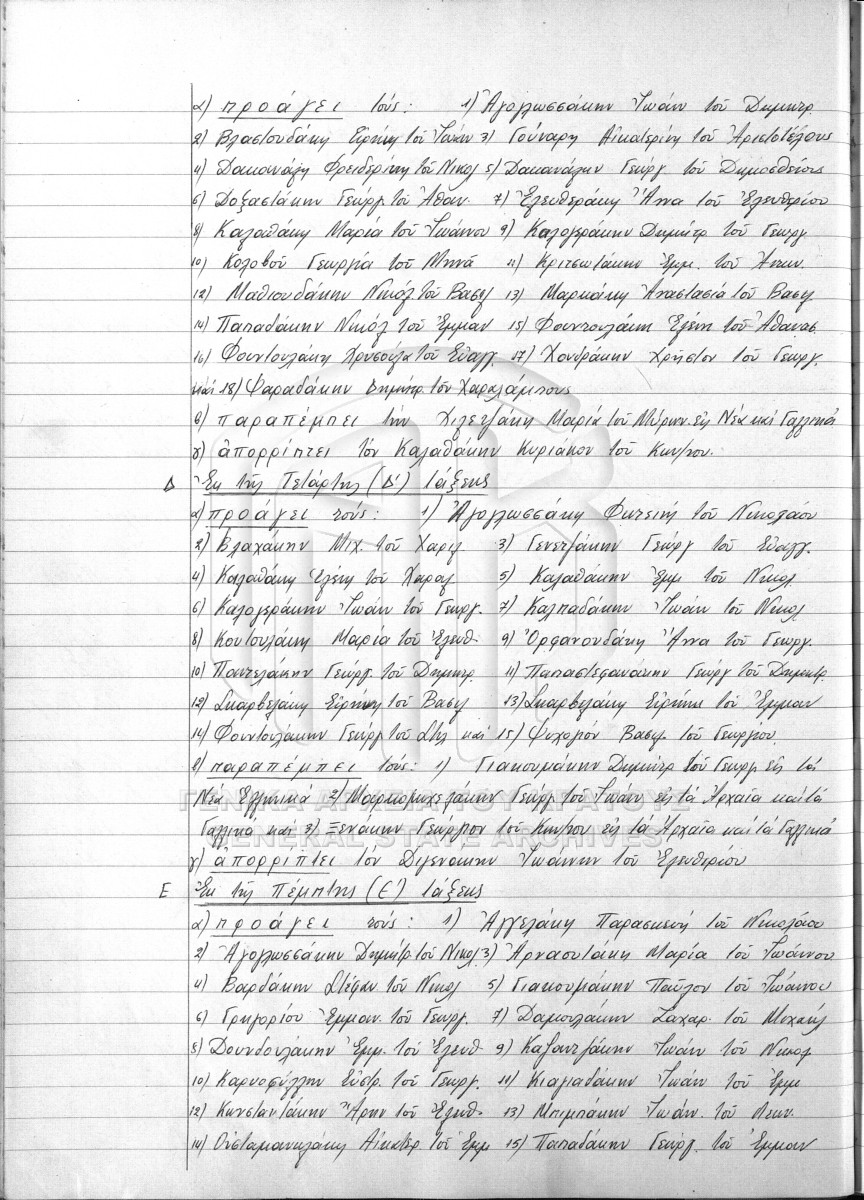 α) προάγει τούς: 1) Ἀγογλωσσάκην Ἰωάν τοῦ Δημητρ.
2) Βλαστουδάκη Εἰρήνη τοῦ Ἰωάν 3) Γούναρη Αἰκατερίνη τοῦ Ἀριστοτέλους
4) Δακανάλη Φρειδερίκη τοῦ Νικολ 5) Δακανάλην Γεώργ τοῦ Δημοσθένους
6) Δοξαστάκην Γεώργ. τοῦ Ἀθαν. 7) Ἐλευθεράκη Ἄννα τοῦ Ἐλευθερίου
8) Καλαθάκη Μαρία τοῦ Ἰωάννου 9) Καλογεράκην Δημήτρ. τοῦ Γεωργ
10) Κολοβοῦ Γεωργία τοῦ Μηνᾶ 11) Κριτσωτάκην Ἐμμ. τοῦ Ἀντων.
12) Μαθιουδάκην Νικόλ τοῦ Βασιλ 13) Μαρκάκη Ἀναστασία τοῦ Βασιλ
14) Παπαδάκην Νικόλ τοῦ Ἐμμαν 15) Φουντουλάκη Ἑλένη τοῦ Ἀθανασ.
16) Φουντουλάκη Χρυσούλα τοῦ Εὐαγγ. 17) Χονδράκην Χρῆστον τοῦ Γεωργ.
καί 18) Ψαραδάκην Δημήτρ. τοῦ Χαραλάμπους
β) παραπέμπει τήν Χιλετζάκη Μαρία τοῦ Μύρων. εἰς Νέα καί Γαλλικά
γ) ἀπορρίπτει τόν Καλαθάκην Κυριάκον τοῦ Κων/νου.
Δ Ἐκ τῆς Τετάρτης (Δ') τάξεως
α) προάγει τούς: 1) Ἀγογλωσσάκη Φωτεινή τοῦ Νικολάου
2) Βλαχάκην Μιχ. τοῦ Χαριλ 3) Γενετζάκην Γεώργ τοῦ Εὐαγγ.
4) Καλαθάκη Ἑλένη τοῦ Χαραλ 5) Καλαθάκην Ἐμμ τοῦ Νικολ.
6) Καλογεράκην Ἰωάν τοῦ Γεωργ. 7) Καλπαδάκην Ἰωάν τοῦ Νικολ
8) Κουτουλάκη Μαρία τοῦ Ἐλευθ. 9) Ὀρφανουδάκη Ἄννα τοῦ Γεωργ.
10) Παντελάκην Γεώργ. τοῦ Δημητρ. 11) Παπαστεφανάκην Γεώργ τοῦ Δημητρ.
12) Σκαρβελάκη Εἰρήνη τοῦ Βασιλ 13) Σκαρβελάκη Εἰρήνη τοῦ Ἐμμαν
14) Φουντουλάκην Γεώργ τοῦ Στυλ καί 15) Ψυχογιόν Βασιλ τοῦ Γεωργίου.
β) παραπέμπει τούς: 1) Γιακουμάκην Δημητρ τοῦ Γεωργ. εἰς τά
Νέα Ἑλληνικά 2) Μαρκομιχελάκην Γεώργ. τοῦ Ἰωάν εἰς τά Ἀρχαῖα καί τά
Γαλλικά καί 3) Ξενάκην Γεώργιον τοῦ Κων/νου εἰς τά Ἀρχαῖα καί τά Γαλλικά
γ) ἀπορρίπτει τόν Διγενάκην Ἰωάννην τοῦ Ἐλευθερίου
Ε Ἐκ τῆς Πέμπτης (Ε') τάξεως
α) προάγει τούς: 1) Ἀγγελάκη Παρασκευή τοῦ Νικολάου
2) Ἀγογλωσσάκην Δημήτρ. τοῦ Νικολ 3) Ἀρναουτάκη Μαρία τοῦ Ἰωάννου
4) Βαρδάκην Στέφαν τοῦ Νικολ 5) Γιακουμάκην Παῦλον τοῦ Ἰωάννου
6) Γρηγορίου Ἐμμαν. τοῦ Γεωργ. 7) Δαμουλάκην Ζαχαρ. τοῦ Μιχαήλ
8) Δουνδουλάκην Ἐμμ. τοῦ Ἐλευθ. 9) Καζαντζάκην Ἰωάν τοῦ Νικολ
10) Καρυοφύλλην Εὐστρ. τοῦ Γεωργ. 11) Κιαγιαδάκην Ἰωάν τοῦ Ἐμμ
12) Κωνσταντάκην Ἄρην τοῦ Ἐλευθ. 13) Μπιμπάκην Ἰωάν. τοῦ
14) Οὐσταμανωλάκη Αἰκατερ. τοῦ Ἐμμ 15) Παπαδάκην Γεώργ. τοῦ Ἐμμαν
ΓΕΝΙΚΑ ΑΡΧΕΙΑ ΤΟΥ ΚΡΑΤΟΥΣ
GENERAL STATE ARCHIVES